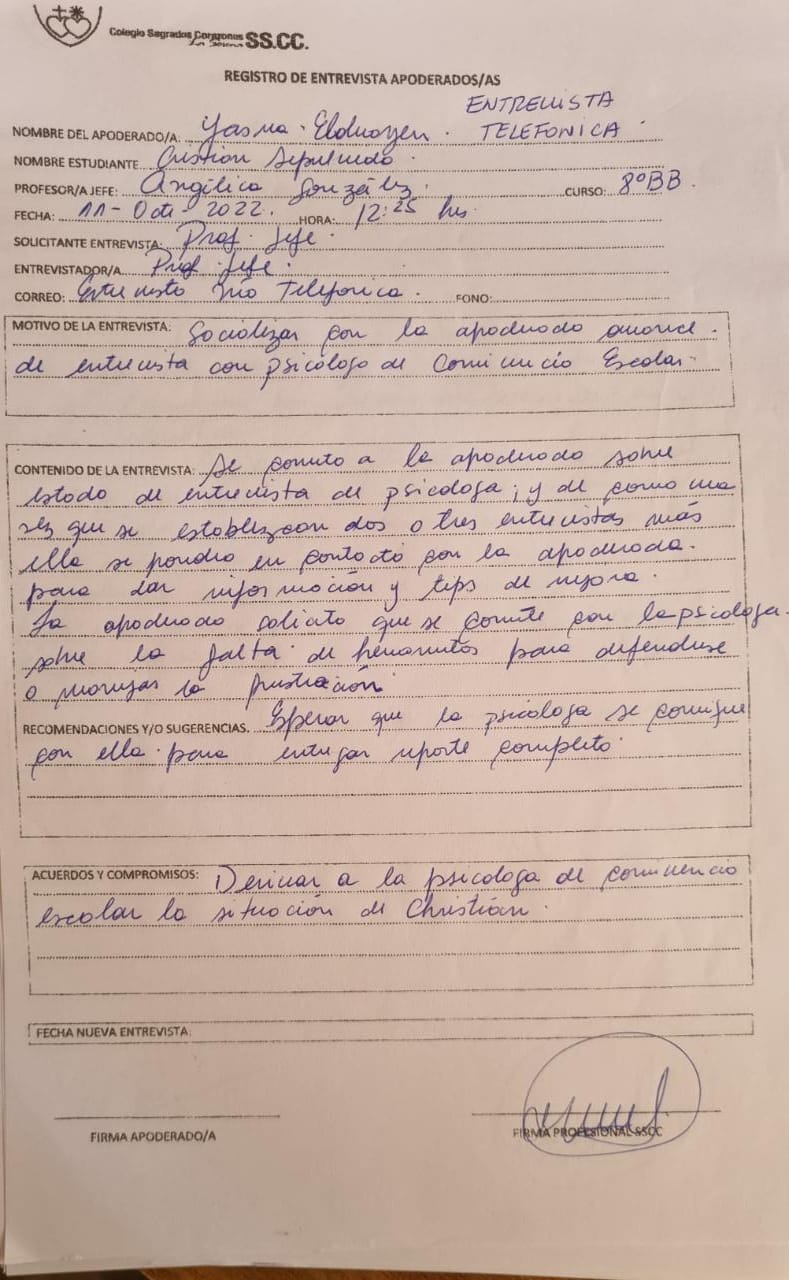 Colegio Sagrados Corazones SS.CC.
La Serena
REGISTRO DE ENTREVISTA APODERADOS/AS
ENTREVISTA
TELEFONICA
NOMBRE DEL APODERADO/A: Yasna
NOMBRE ESTUDIANTE Cristian Sepulveda.
PROFESOR/A JEFE: Angélica González. CURSO: 8ºBB.
FECHA: 11-Oct. 2022. HORA: 12:25 hrs.
SOLICITANTE ENTREVISTA: Prof. Jefe.
ENTREVISTADOR/A Prof. Jefe.
CORREO: Entrevista Vía Telefonica. FONO:
MOTIVO DE LA ENTREVISTA: Socializar con la apoderada avance
de entrevista con psicólogo de Convivencia Escolar.
CONTENIDO DE LA ENTREVISTA: Se comenta a la apoderada sobre
estado de entrevista de psicologa; y de como una
vez que se establezcan dos o tres entrevistas más
ella se pondra en contacto con la apoderada.
para dar información y tips de mejora.
La apoderada solicita que se comente con la psicologa.
sobre la falta de herramientas para defenderse
o manejar la frustración.
RECOMENDACIONES Y/O SUGERENCIAS. Esperar que la psicologa se comunique
con ella para entregar reporte completo.
ACUERDOS Y COMPROMISOS: Derivar a la psicologa de convivencia
escolar la situación de Christián.
FECHA NUEVA ENTREVISTA:
FIRMA APODERADO/A
FIRMA PROFESIONAL SSCC